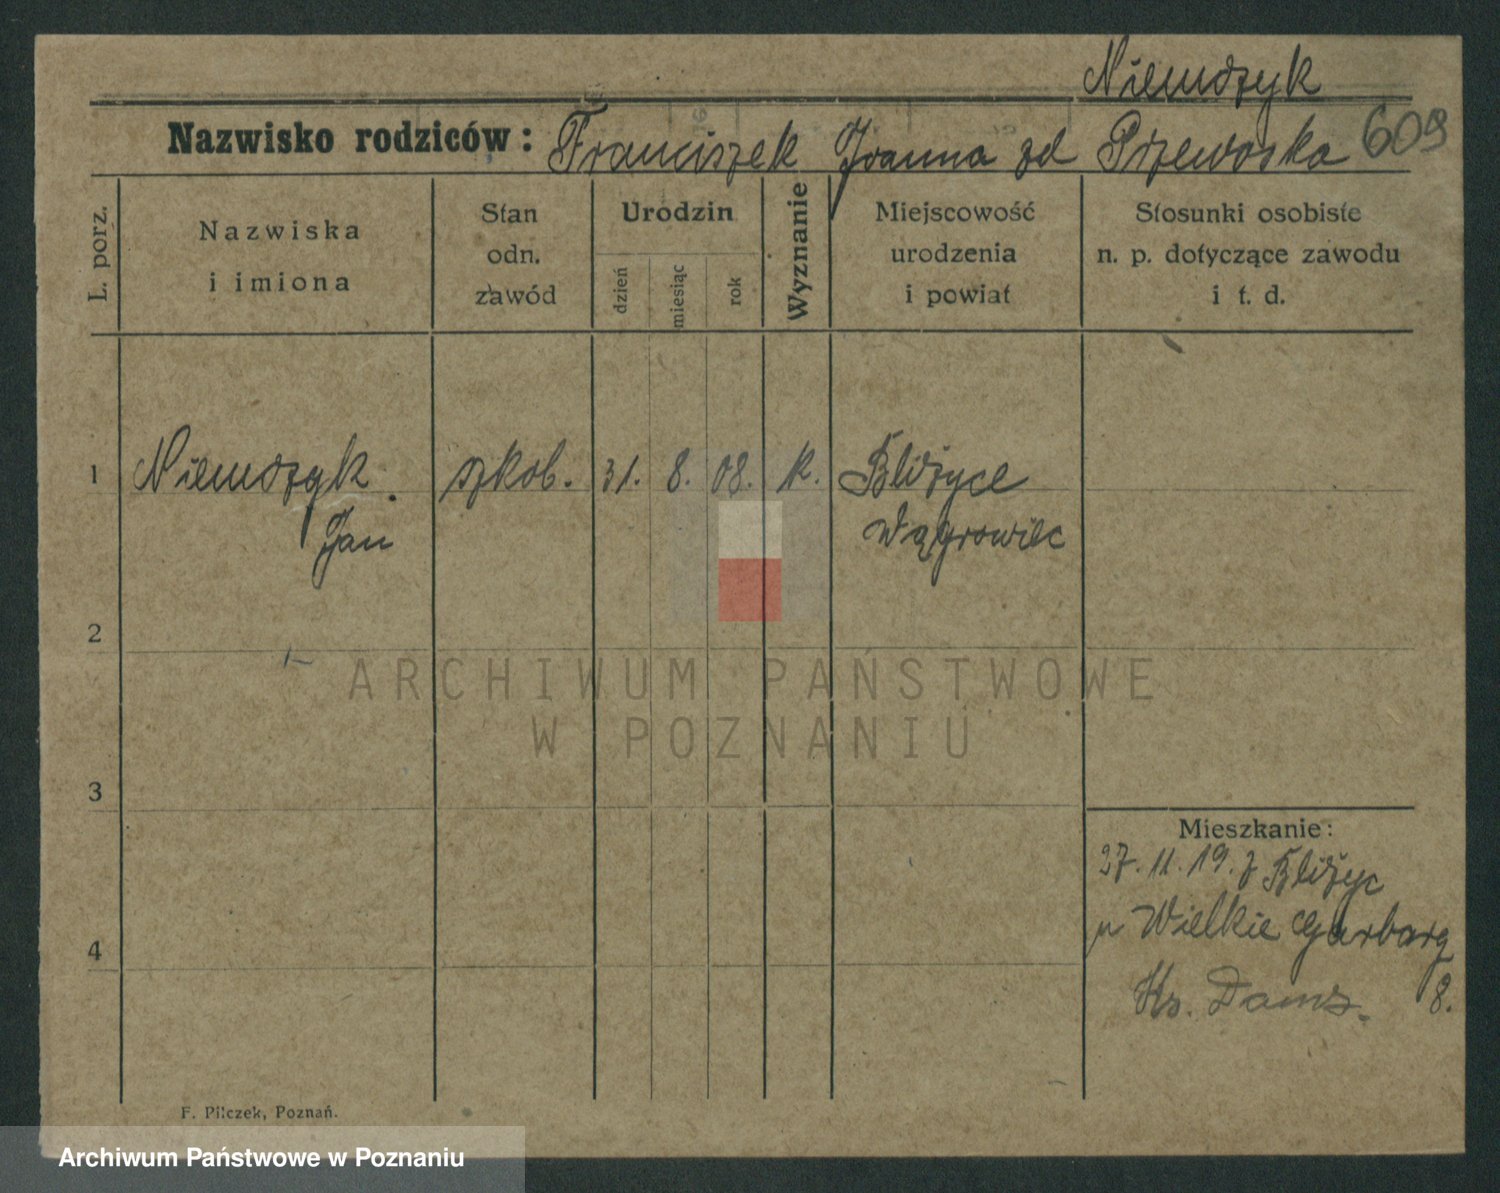 Niemczyk
Nazwisko rodziców: Franciszek Joanna zd Przewoska 609
L. porz.
Nazwiska i imiona
Stan odn. zawód
Urodzin
dzień
miesiąc
rok
Wyznanie
Miejscowość urodzenia i powiat
Stosunki osobiste n. p. dotyczące zawodu i t. d.
1 Niemczyk szkob. 31. 8. 08. k. Bliżyce
Jan Wągrowiec
2
ARCHIWUM PAŃSTWOWE
W POZNANIU
3
Mieszkanie:
27. 11. 19. z Bliżyc
4 Wielkie Garbary
8.
F. Pilczek, Poznań.
Archiwum Państwowe w Poznaniu